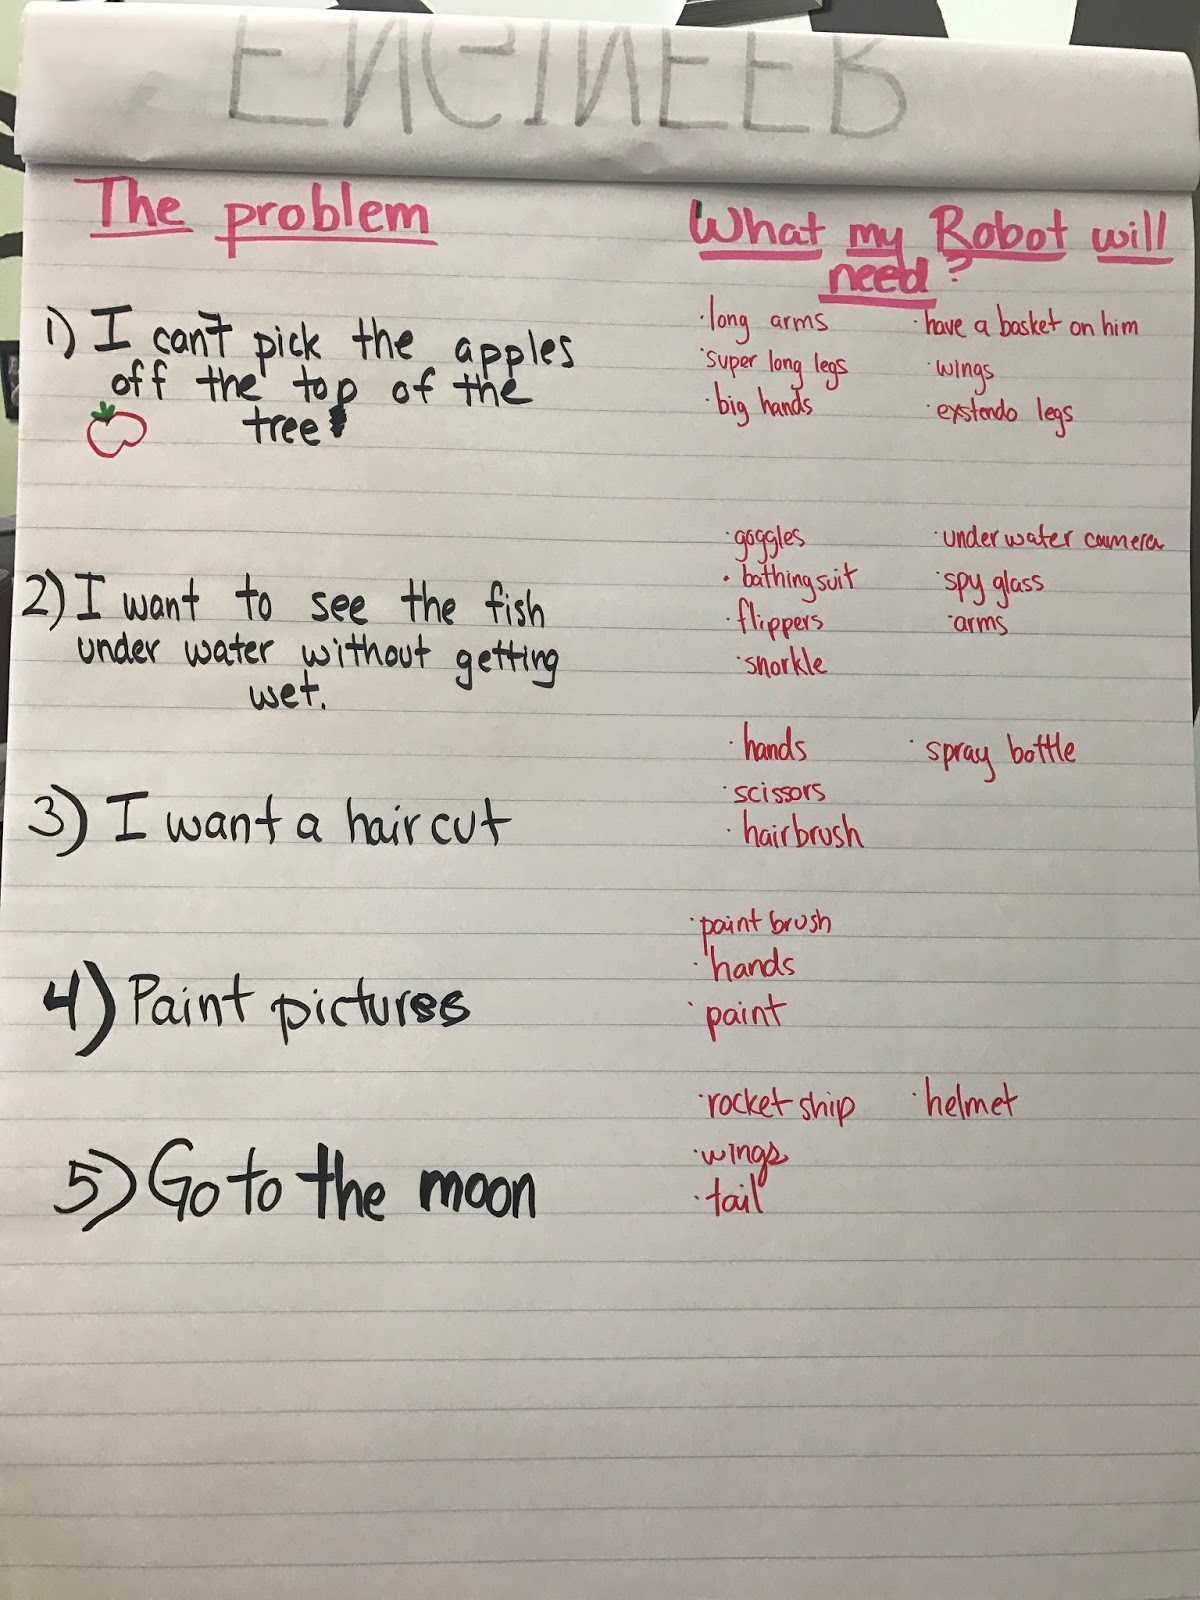 ENGINEER
The problem
What my Robot will
need?
1) I can't pick the apples
off the top of the
tree
· long arms
· super long legs
· big hands
· have a basket on him
· wings
· exstendo legs
2) I want to see the fish
under water without getting
wet.
· goggles
· bathing suit
· flippers
· snorkle
· under water camera
· spy glass
· arms
3) I want a hair cut
· hands
· scissors
· hairbrush
· spray bottle
4) Paint pictures
· paint brush
· hands
· paint
5) Go to the moon
· rocket ship
· wings
· tail
· helmet